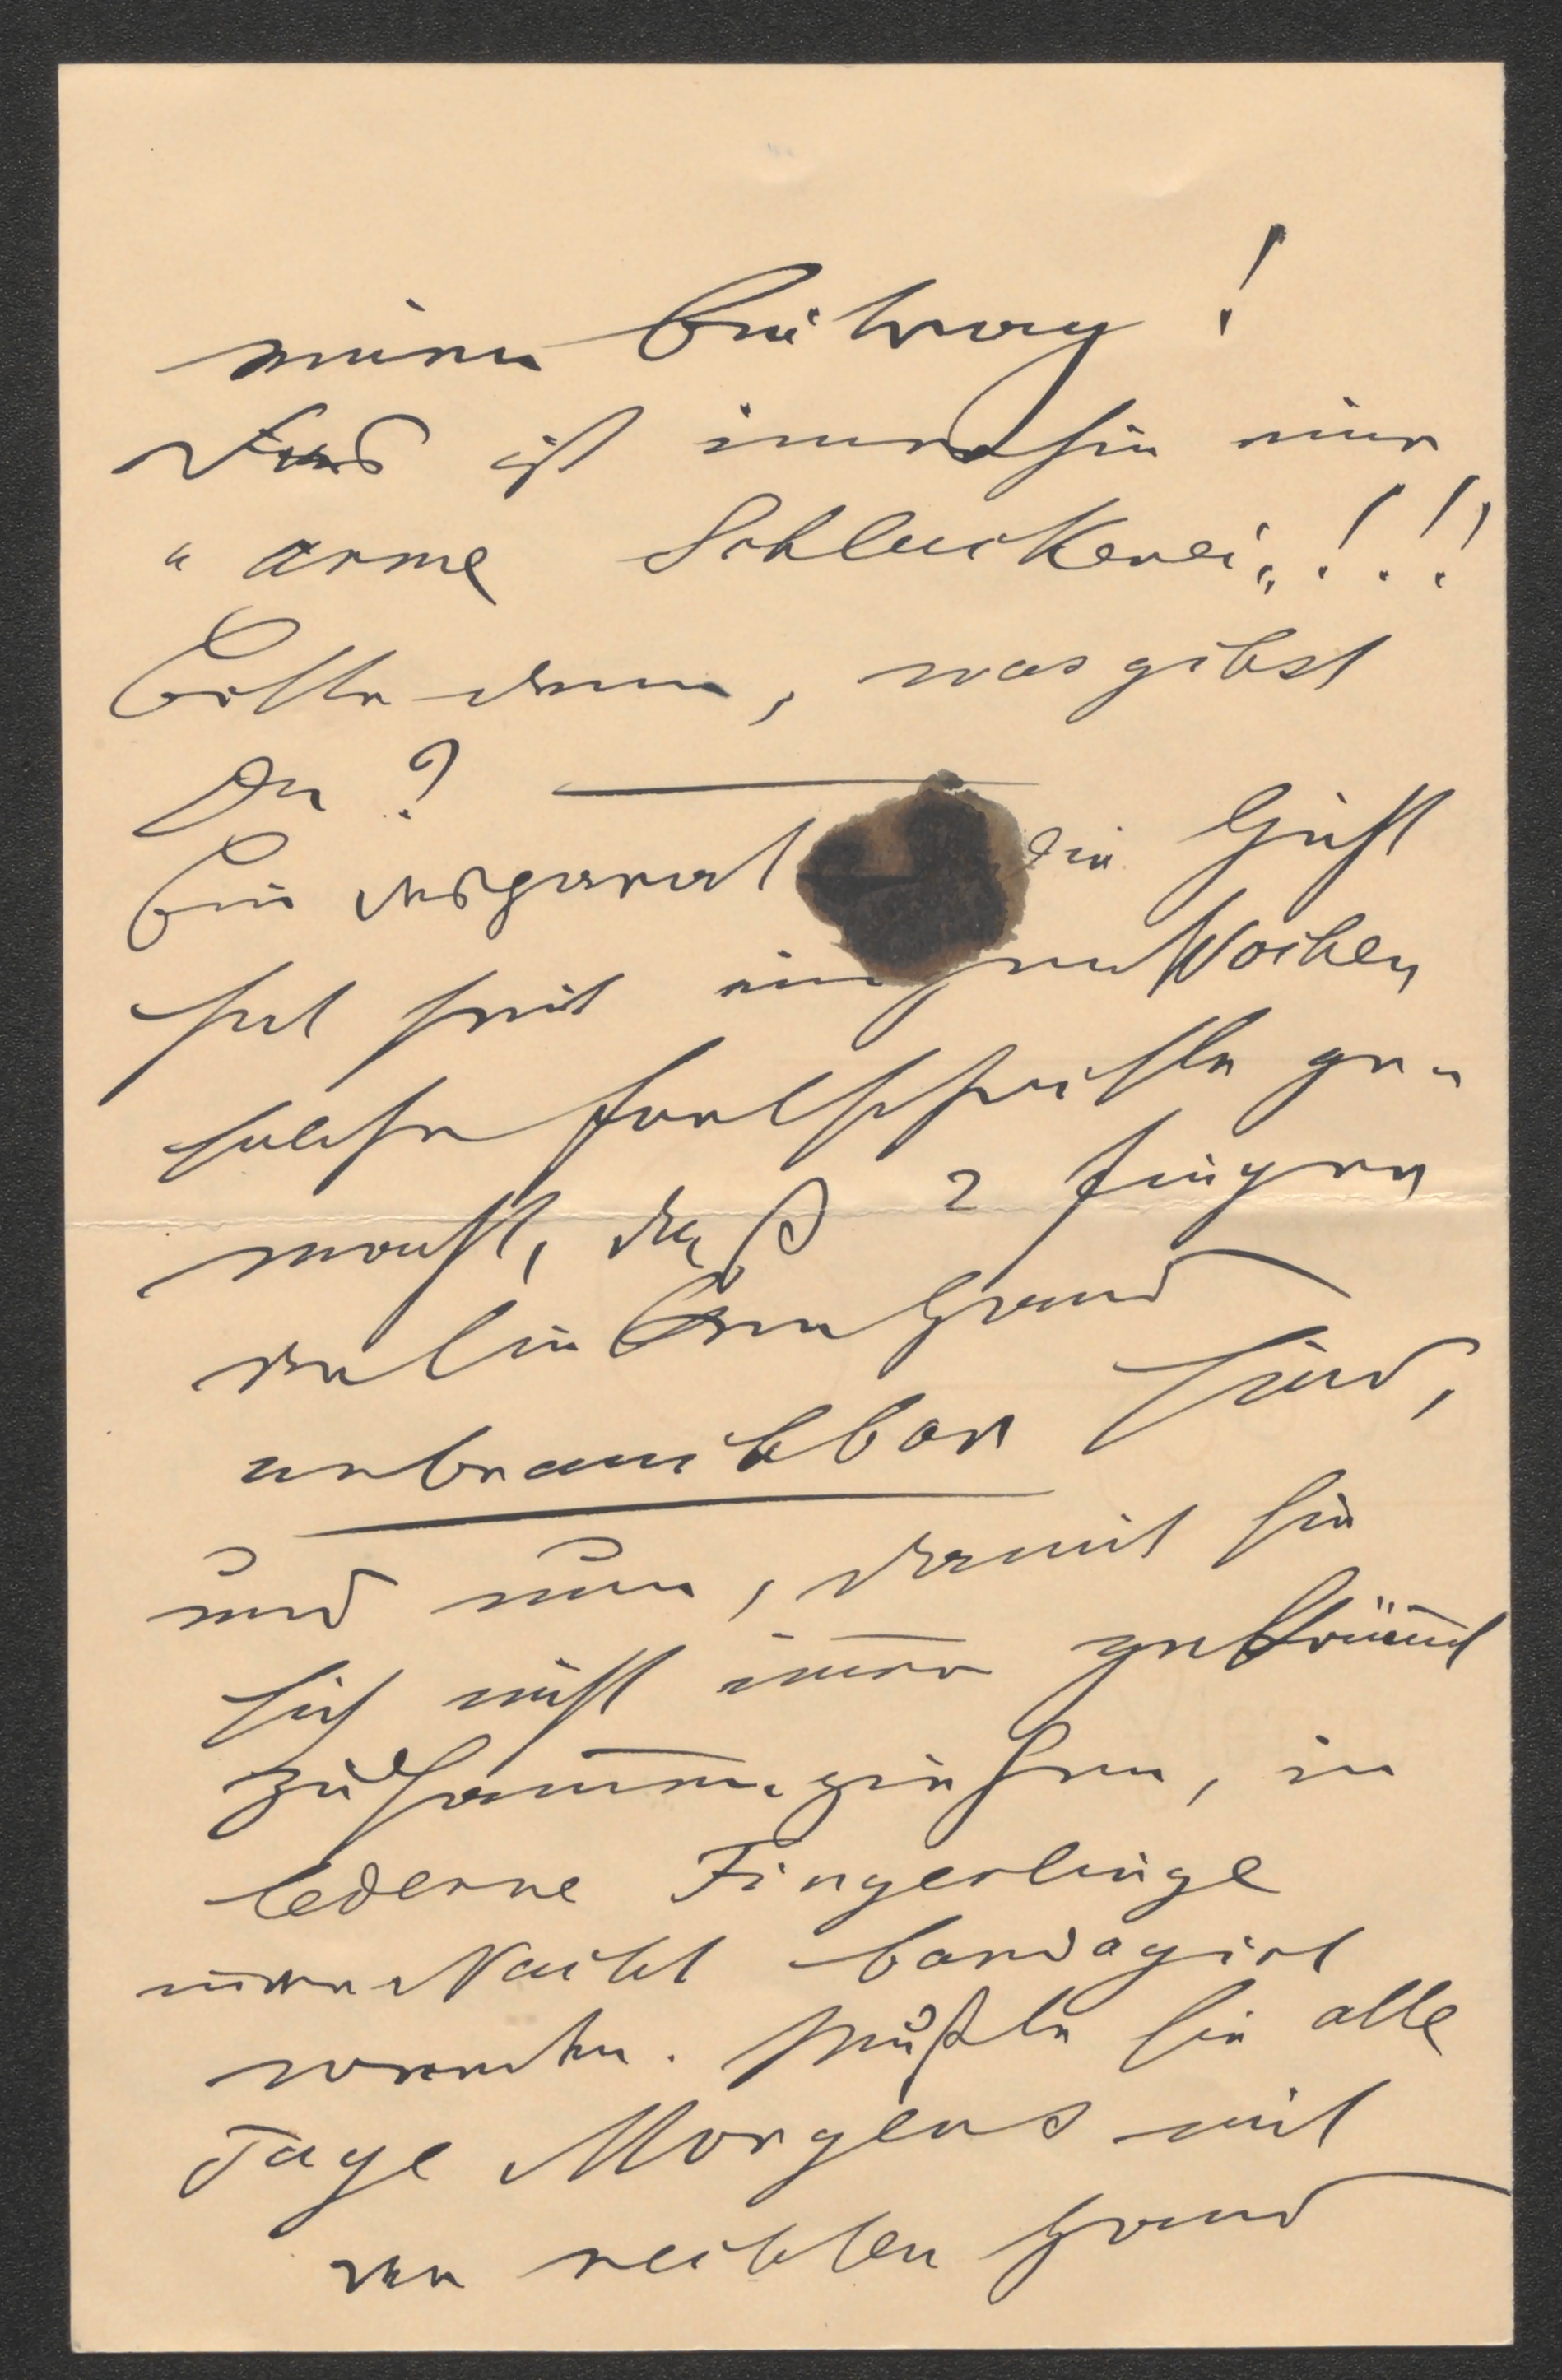 meinen Beitrag!
Das ist immerhin eine
"arme Schluckerei"!!!
Bitte denn, was gibst
Du?
Bin desparat die Gicht
hat seit einigen Wochen
solche Fortschritte ge-
macht, daß 2 Finger
der linken Hand
unbrauchbar sind,
und nun, damit sie
sich nicht im̅er gekrüm̅t
zusam̅enziehen, in
lederne Fingerlinge
Nacht bandagirt
werden. Mußte sie alle
Tage Morgens mit
der rechten Hand